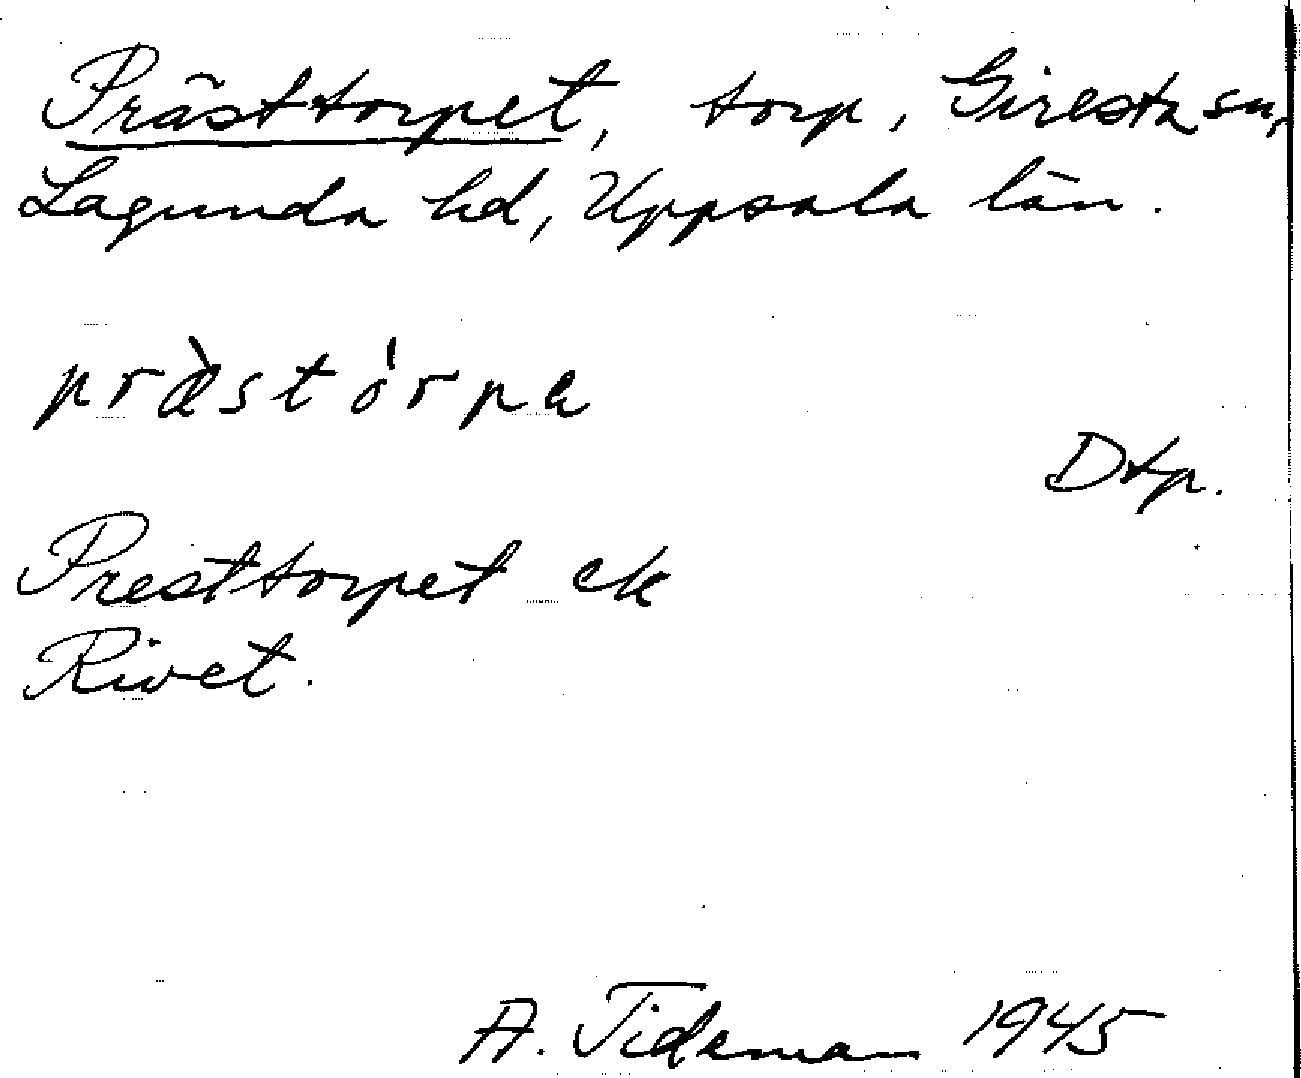 Prästtorpet, torp, Giresta sn,
Lagunda hd, Uppsala län.
præ̀stórpa
Dtp.
Presttorpet ek
Rivet.
A. Tideman 1945